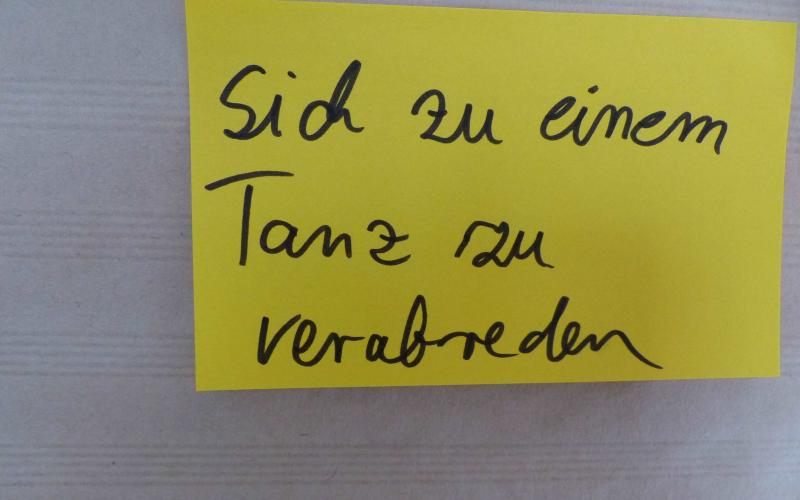 Sich zu einem
Tanz zu
verabreden